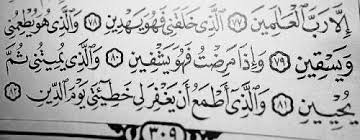 إِلَّا رَبَّ الْعَالَمِينَ ﴿٧٧﴾ الَّذِي خَلَقَنِي فَهُوَ يَهْدِينِ ﴿٧٨﴾ وَالَّذِي هُوَ يُطْعِمُنِي
وَيَسْقِينِ ﴿٧٩﴾ وَإِذَا مَرِضْتُ فَهُوَ يَشْفِينِ ﴿٨٠﴾ وَالَّذِي يُمِيتُنِي ثُمَّ
يُحْيِينِ ﴿٨١﴾ وَالَّذِي أَطْمَعُ أَنْ يَغْفِرَ لِي خَطِيئَتِي يَوْمَ الدِّينِ ﴿٨٢﴾
٣٠٩